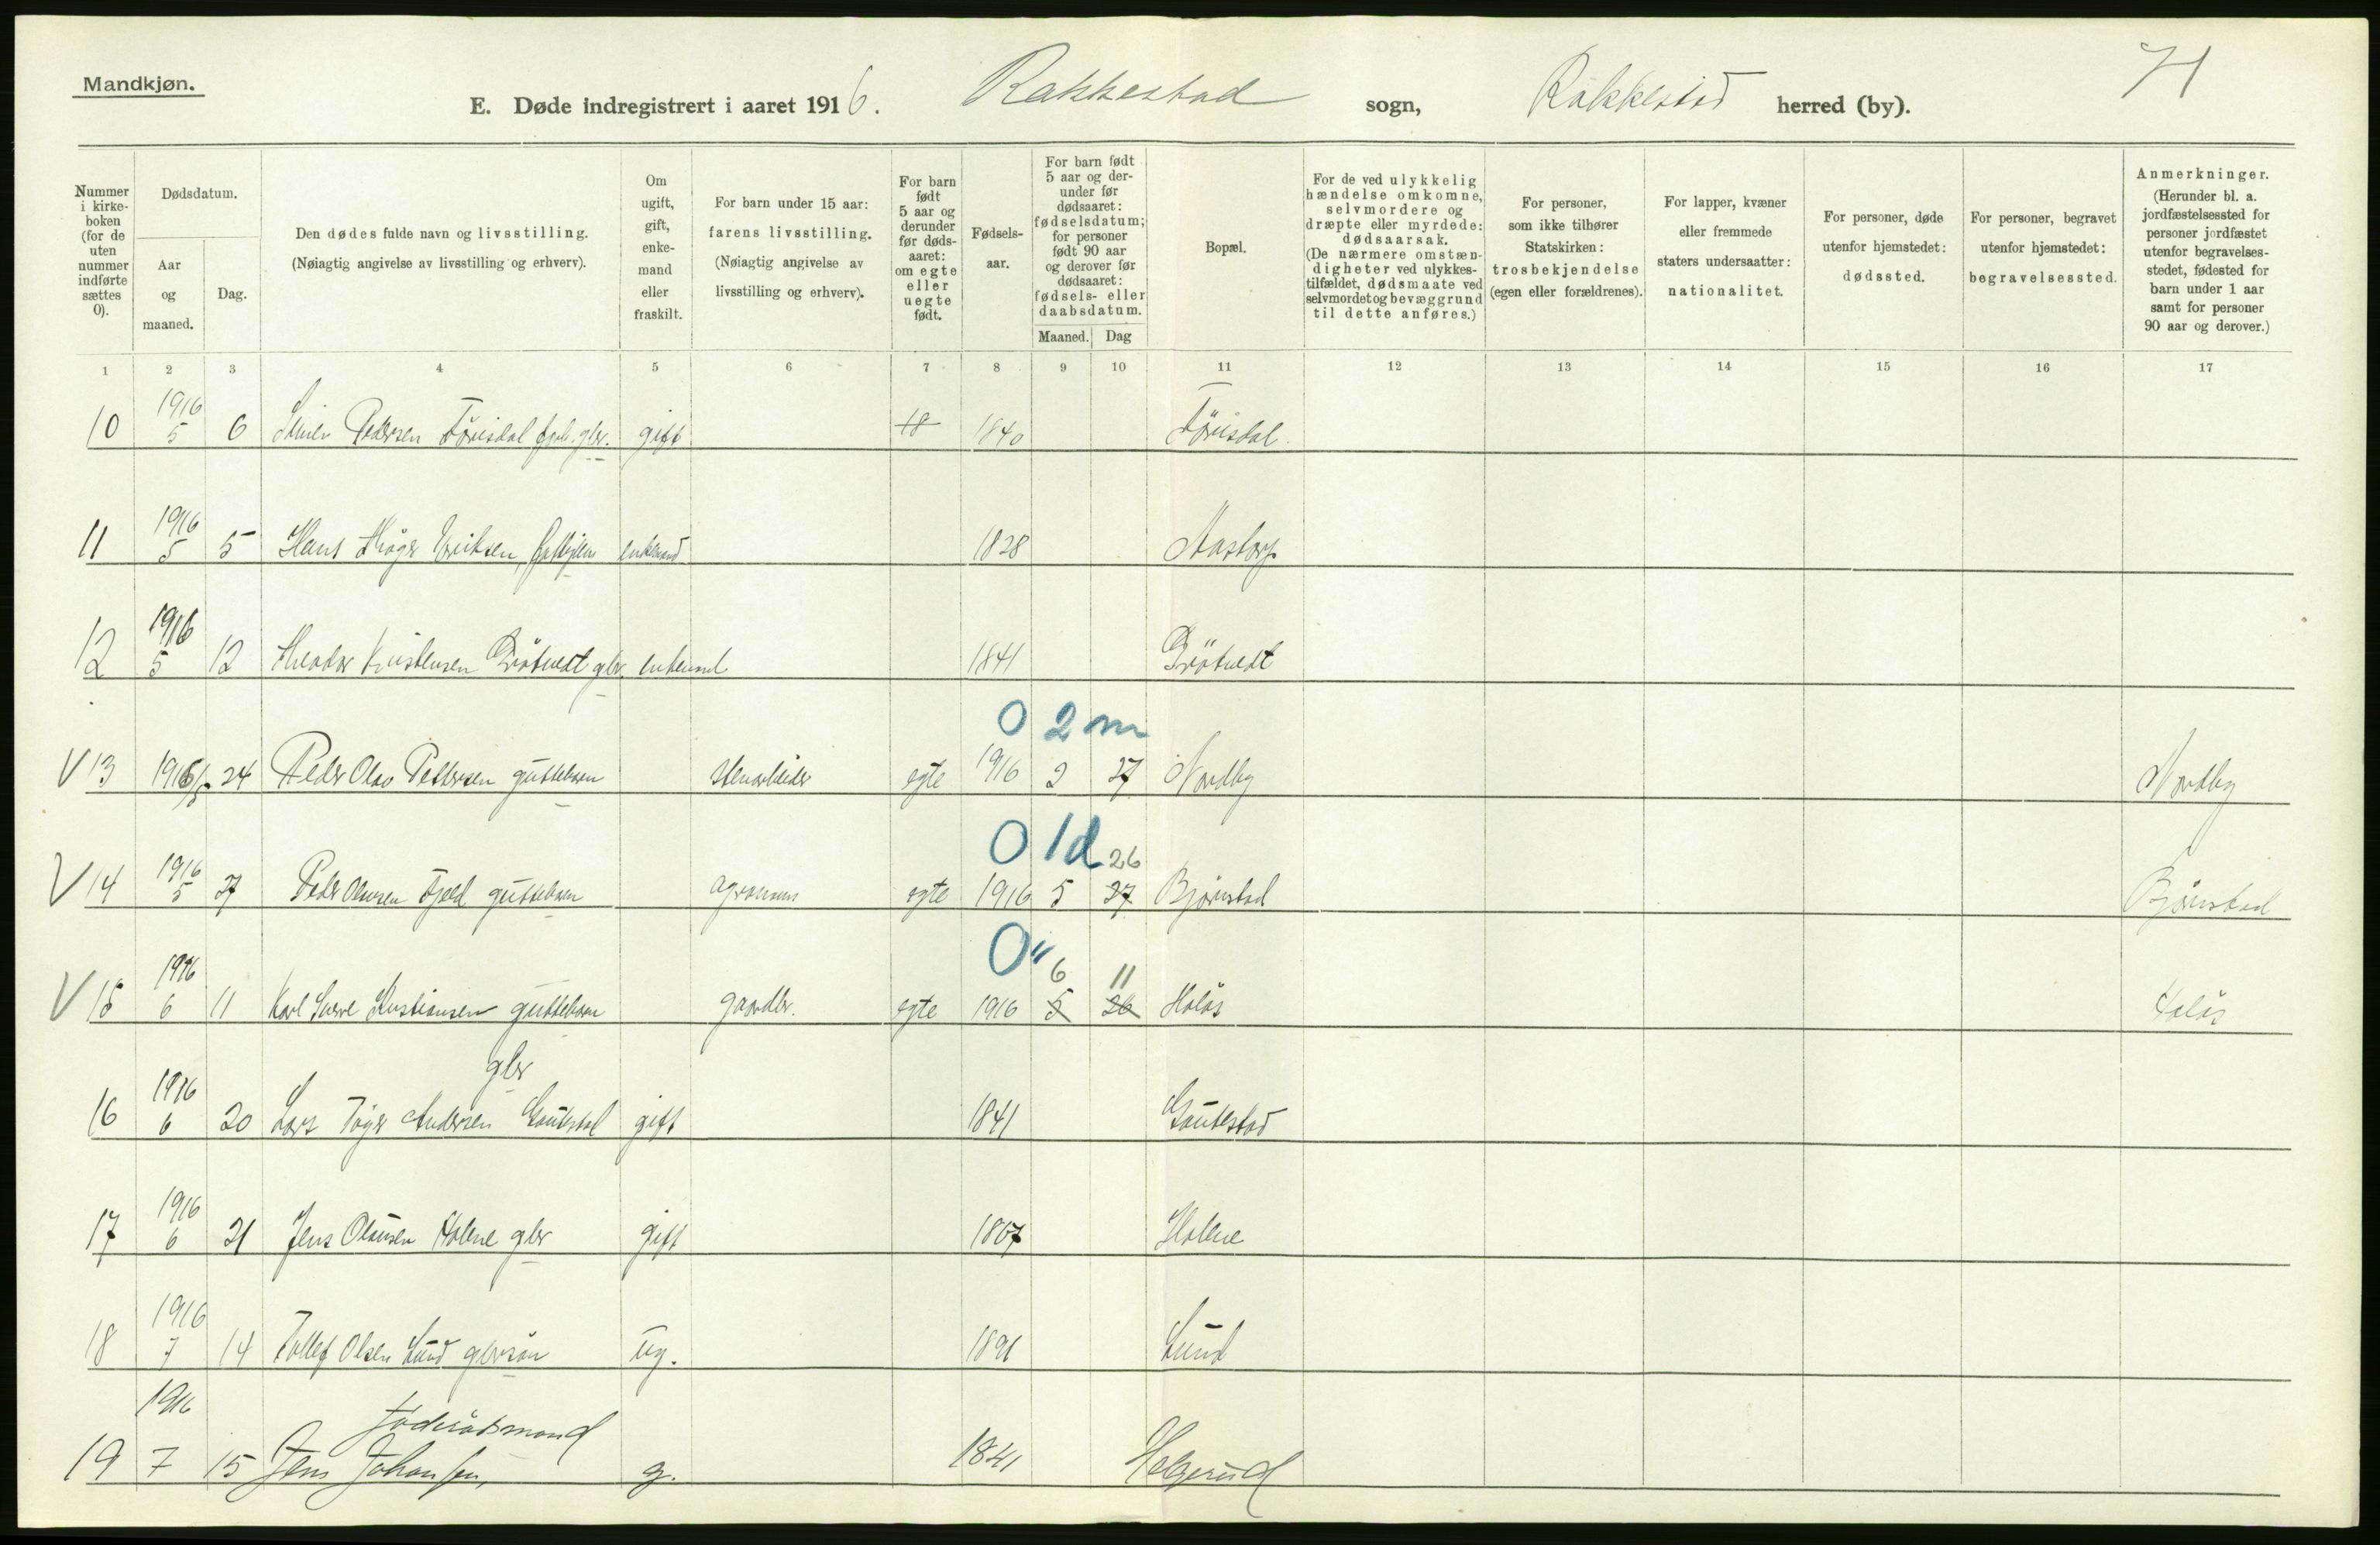 Mandkjøn.
E. Døde indregistrert i aaret 1916. Rakkestad sogn, Rakkestad herred (by). 71
Nummer i kirke-boken (for de uten nummer indførte sættes 0).
Dødsdatum.
Aar og maaned.
Dag.
Den dødes fulde navn og livsstilling.
(Nøiagtig angivelse av livsstilling og erhverv).
Om ugift, gift, enke-mand eller fraskilt.
For barn under 15 aar: farens livsstilling.
(Nøiagtig angivelse av livsstilling og erhverv).
For barn født 5 aar og derunder før døds-aaret: om egte eller uegte født.
Fødsels-aar.
For barn født 5 aar og der-under før dødsaaret: fødselsdatum; for personer født 90 aar og derover før dødsaaret: fødsels- eller daabsdatum.
Maaned. Dag
Bopæl.
For de ved ulykkelig hændelse omkomne, selvmordere og dræpte eller myrdede: dødsaarsak.
(De nærmere omstæn-digheter ved ulykkes-tilfældet, dødsmaate ved selvmordet og bevæggrund til dette anføres.)
For personer, som ikke tilhører Statskirken: trosbekjendelse (egen eller forældrenes).
For lapper, kvæner eller fremmede staters undersaatter: nationalitet.
For personer, døde utenfor hjemstedet: dødssted.
For personer, begravet utenfor hjemstedet: begravelsessted.
Anmerkninger.
(Herunder bl. a. jordfæstelsessted for personer jordfæstet utenfor begravelses-stedet, fødested for barn under 1 aar samt for personer 90 aar og derover.)
1 2 3 4 5 6 7 8 9 10 11 12 13 14 15 16 17
1916
10 5 6 Pedersen gbr. gift 18 1840
1916
11 5 5 Hans Eriksen, enkemand 1828 Aastorp
1916
12 5 12 Kristensen gbr. enkemand 1841
0 2 m
V 13 1916/5 24 Peder Olav Pettersen guttebarn stenarbeider egte 1916 2 27 Nordby Nordby
0 1d 26
1916
V 14 5 27 Peder Olausen Fjeld guttebarn agronom egte 1916 5 27 Bjørnstad Bjørnstad
0 " 6 11
1916
V 15 6 11 Karl Sverre Kristiansen guttebarn gaardbr. egte 1916 5 26 Holøs Holøs
gbr
1916
16 6 20 Lars Andersen Gautestad gift 1841 Gautestad
1916
17 6 21 Jens Olausen Holene gbr gift 1867 Holene
1916
18 7 14 Tollef Olsen Lund gbrsøn ug. 1891 Lund
1916
föderådsmand
19 7 15 Jens Johansen, g. 1841 Helgerud